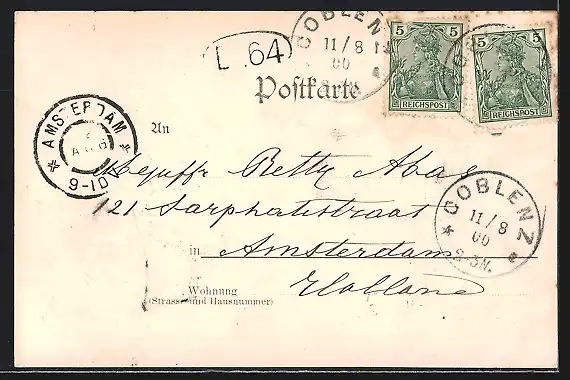 COBLENZ
11/8
00
L. 64
5 5
REICHSPOST
5 5
REICHSPOST
Postkarte
AMSTERDAM
9-10
An
Mejuffr Betty Abas
121 Sarphatistraat
COBLENZ
11/8
00
2-3N.
in Amsterdam
Holland
Wohnung
(Strasse und Hausnummer)